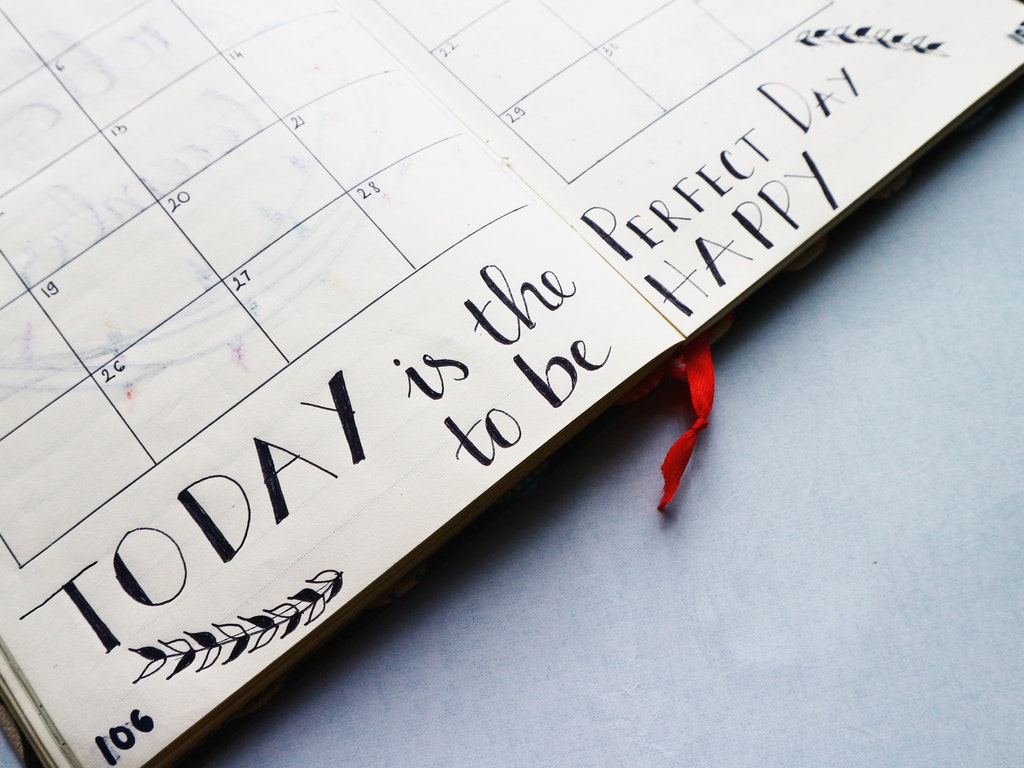 6
14
13
21
20
28
19
27
26
22
30
29
TODAY is the PERFECT DAY
to be HAPPY
106